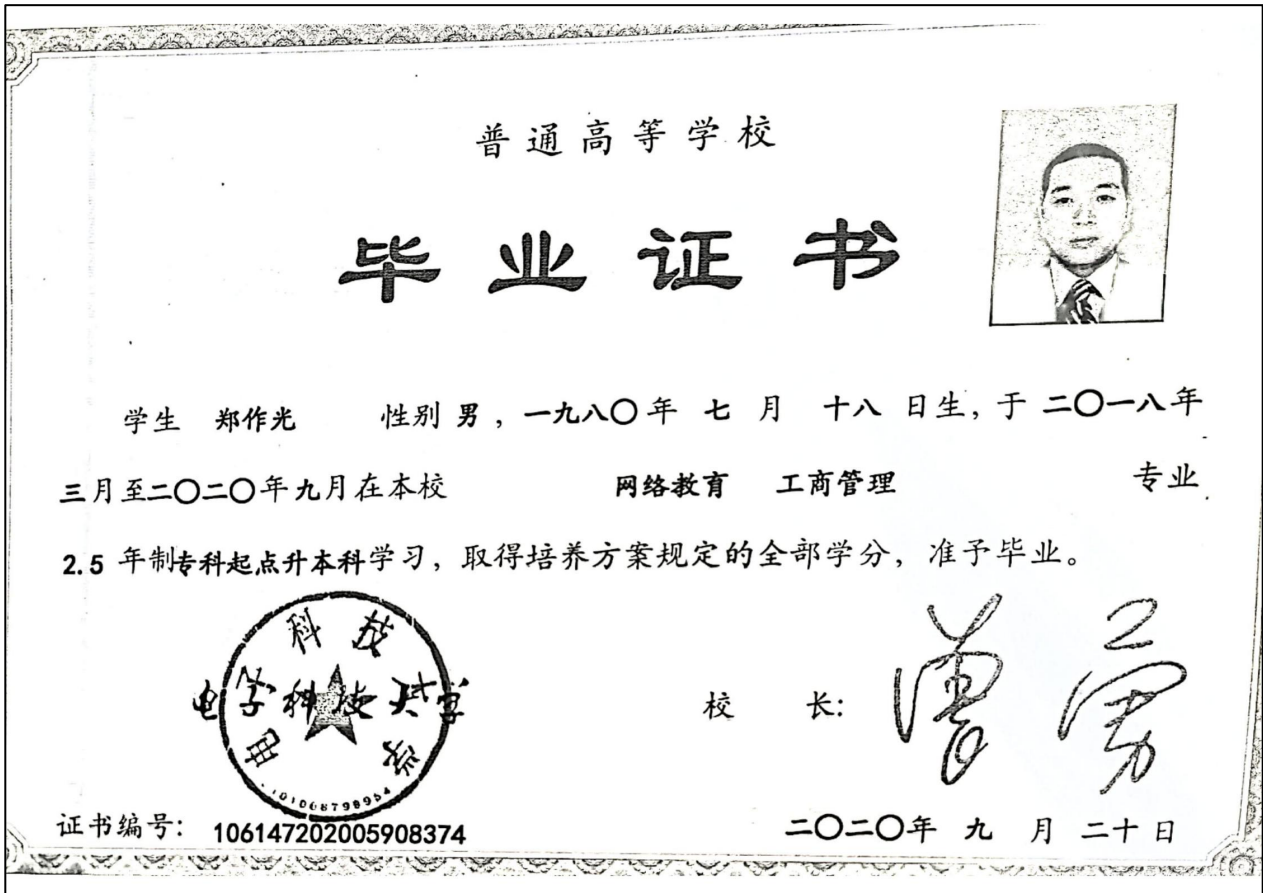 普通高等学校
毕业证书
学生 郑作光 性别 男，一九八〇年 七 月 十八 日生，于 二〇一八年
三月至二〇二〇年九月在本校 网络教育 工商管理 专业
2.5 年制专科起点升本科学习，取得培养方案规定的全部学分，准予毕业。
电子科技大学
电子科技大学
校 长：曾勇
证书编号：106147202005908374
二〇二〇年 九 月 二十 日